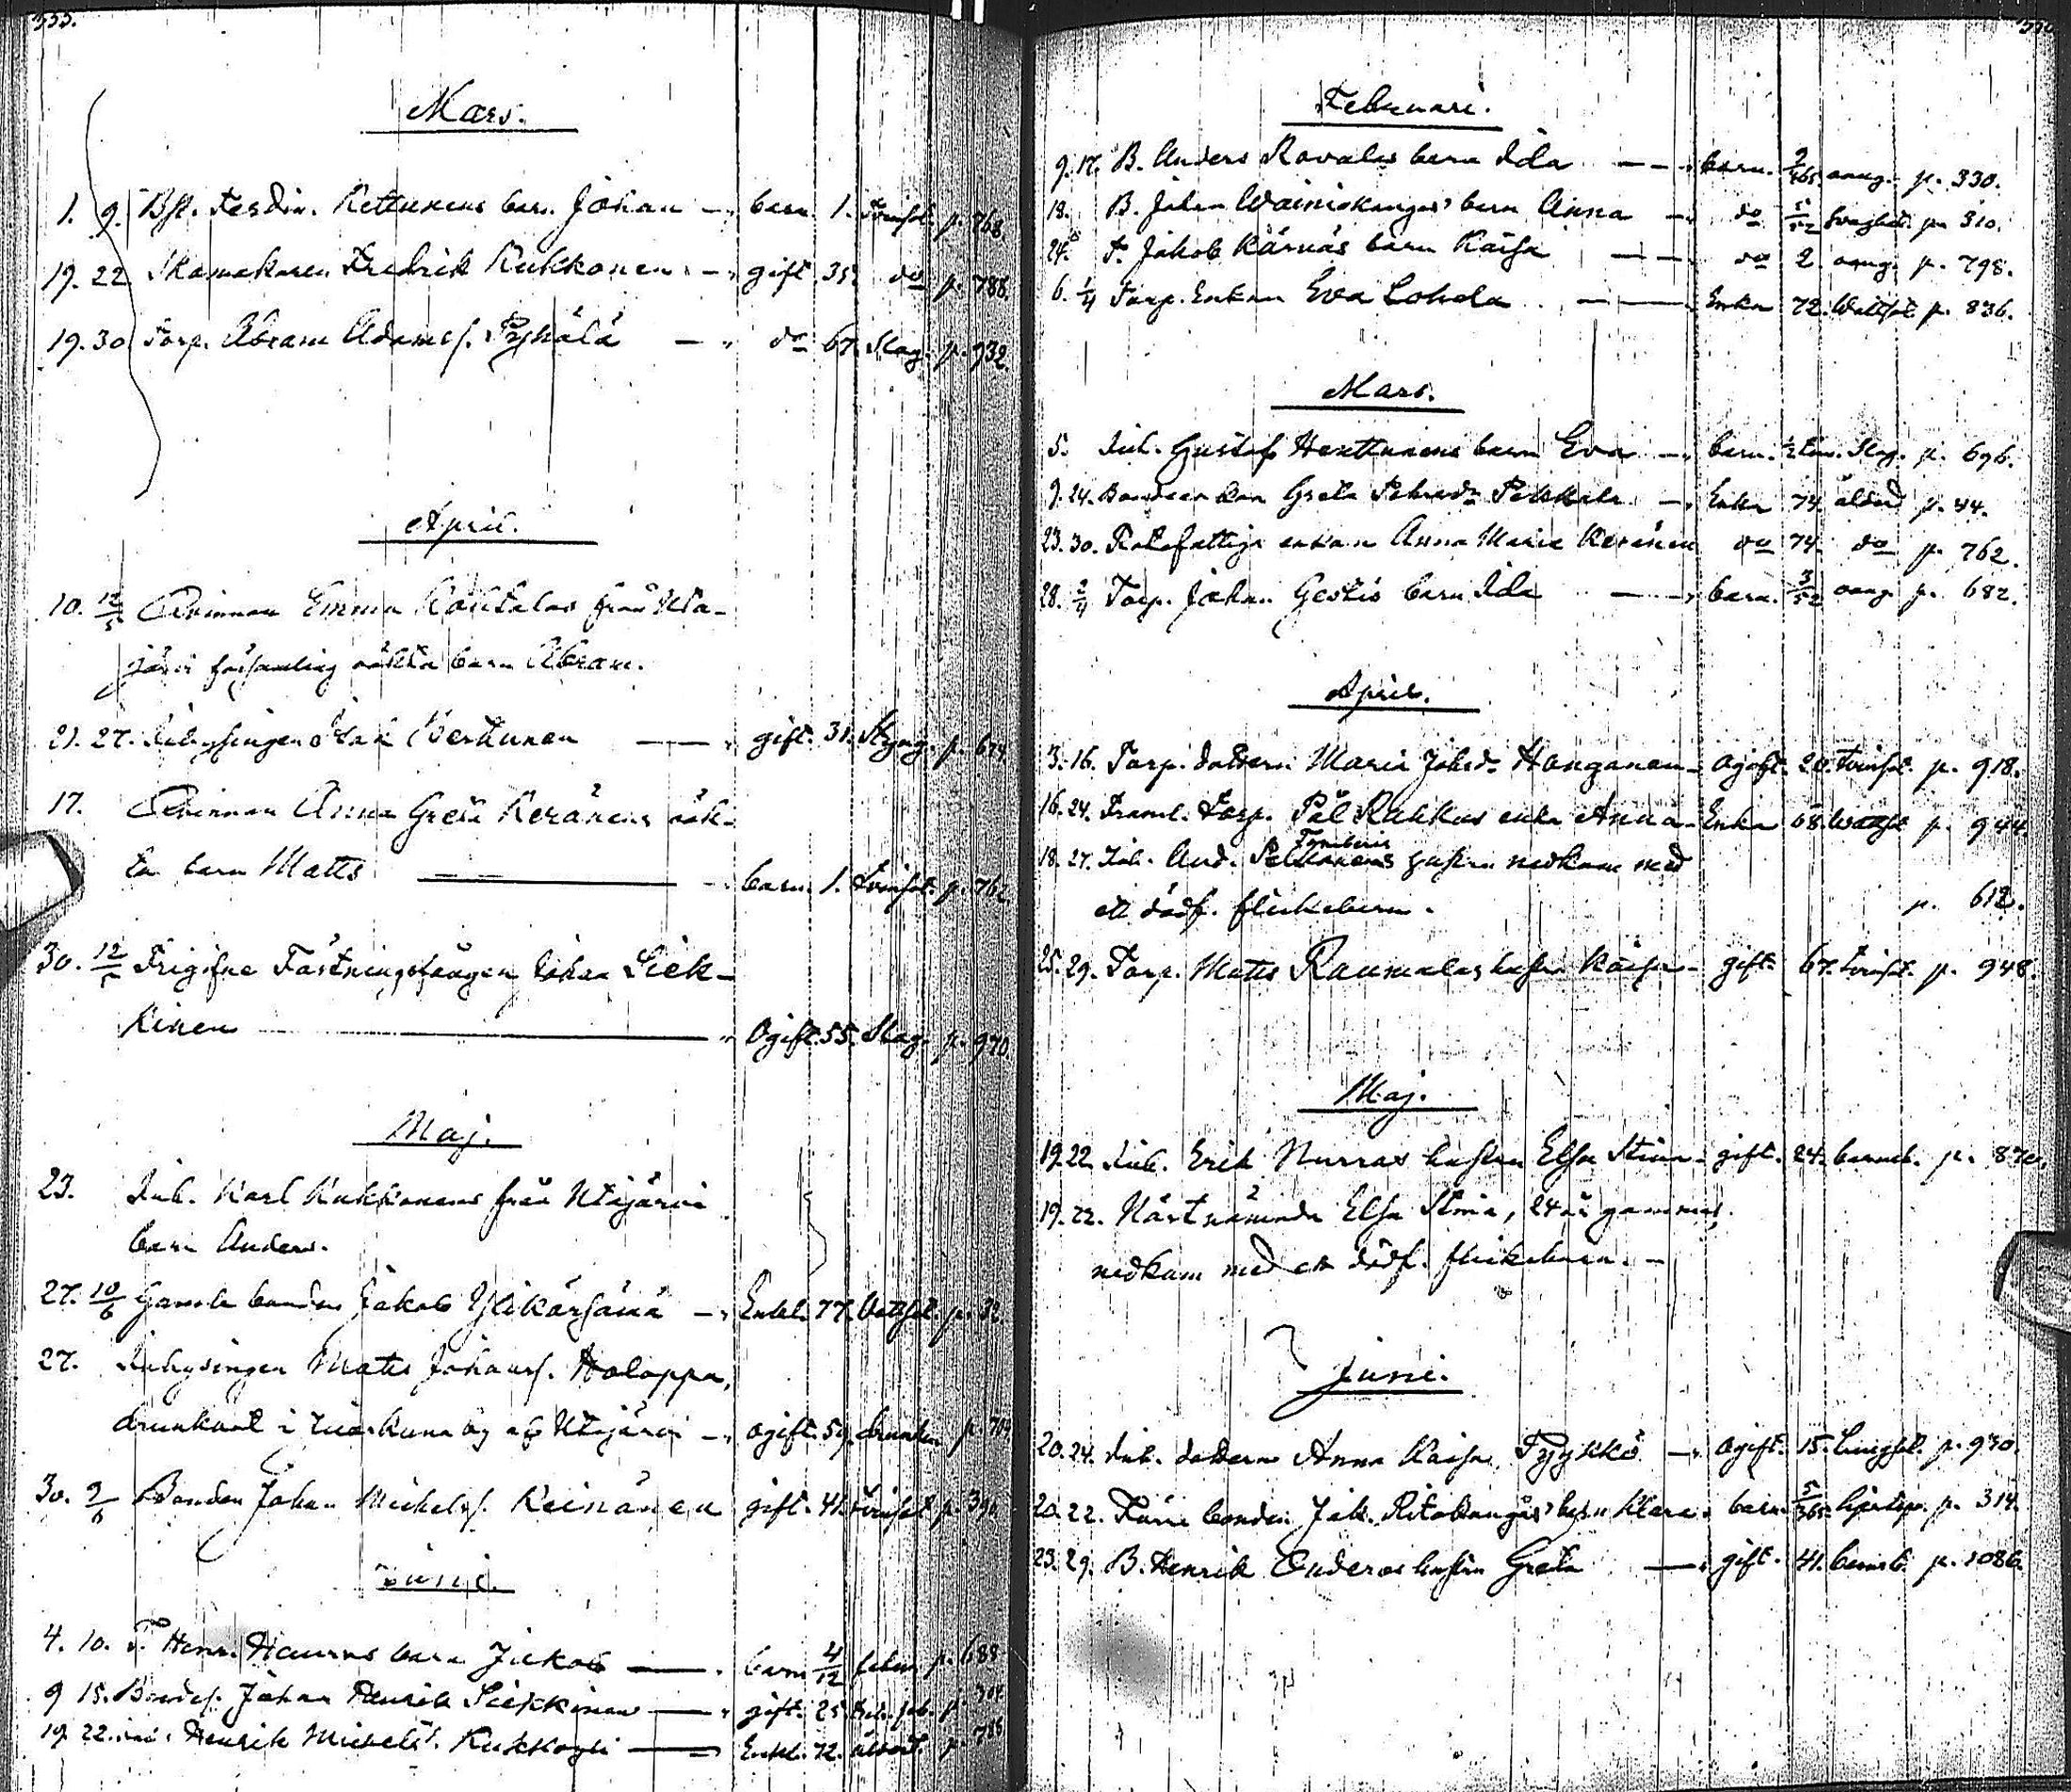 333.
Mars.
1. 9. Bf. Ferdin. Kettunens barn Johan — barn 1. Tvinsot. p. 768.
19. 22 Skomakaren Fredrik Kukkonen — gift 35. do p. 788.
19. 30 Torp. Abram Adamsf. Pyhälä — do 67. Slag. p. 932.
April.
10. 12/5 Qvinnan Emma Rautalas från Uta-
järvi församling oäkta barn Abram.
21. 27. Inhysingen Isak Kerkunen — gift. 31. p.
17. Qvinnan Anna Greta Keränens oäk-
ta barn Matts — barn 1. Tvinsot. p. 762
30. 12/5 Frigifne Fästningsfången Johan Siek-
kinen — Ogift. 55. Slag. p. 970.
Maj.
23. Inh. Karl Kukkonens från Utajärvi
barn Anders.
27. 10/6 Gamle bonden Jakob Ylikärsämä — Enkl. 77. Vattsot. p. 32.
27. Inhysingen Matts Johansf. Holappa,
drunknat i och af Utajärvi — ogift. 59. drunkn. p.
30. 9/6 Bonden Johan Michelsf. Keinänen gift. 41. Tvinsot p. 390
Juni.
4. 10. T. Henr. Haurus barn Jakob — barn 4/12 feber p. 688
9 15. Bondef. Johan Henrik Siekkinen — gift. 25 p. 304.
19. 22. Inh. Henrik Michelsf. Kukkohovi — Enkl. 72. ålderd. p. 788
Februari.
9. 17. B. Anders Rovalas barn Ida — barn. 9/365 oang. p. 330.
18. B. Johan Wainiokangas' barn Anna — do 5/52 svaghet. p. 310.
24. T. Jakob Kärnäs barn Kaisa — do 2 oang. p. 798.
6. 1/4 Torp. Enkan Eva Lohela — Enka 72. Wattsot. p. 836.
Mars.
5. Inh. Gustaf Henttunens barn Eva — barn. ½ tim. Slag. p. 696.
9. 24. Bondeenkan Greta Pehrsdr Pekkala — Enka 74. ålderd p. 44.
23. 30. Rotefattiga enkan Anna Maria Keränen do 74. do p. 762.
28. 2/4 Torp. Johan Gestis barn Ida — barn. 3/52 oang p. 682.
April.
3. 16. Torp. dottern Maria Johsdr Honganen — Ogift. 20. Tvinsot. p. 918.
16. 24. Framl. Torp. Pål Rukkas enka Anna — Enka 68. Wattsot p. 944.
18. 27. Inh. And. Pekkonens hustru nedkom med
ett dödf. flickebarn. p. 612.
25. 29. Torp. Matts Raumalas hustru Kaisa — gift. 67. Tvinsot. p. 948.
Maj.
19. 22. Inh. Erik Nurras hustru Elsa Stina — gift. 24. barnsb. p. 870.
19. 22. Näst nämnda Elsa Stina, 24 år gammal,
nedkom med ett dödf. flickebarn. —
Juni.
20. 24. Inh. dottern Anna Kaisa Tyykkö — Ogift. 15. Lungsot. p. 930.
20. 22. bonden Jak. Ritokangas' barn Klara. barn 5/365 p. 314.
23. 29. B. Henrik Onderos hustru Greta — gift. 41. barnsb. p. 1086.